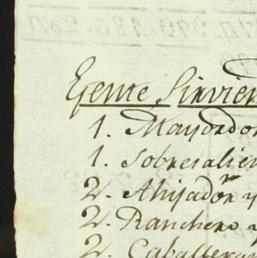 Gente Sirvien
1. Mayordo
1. Sobresalien
2. Ahijador y
2. Ranchero y
2. Caballeran